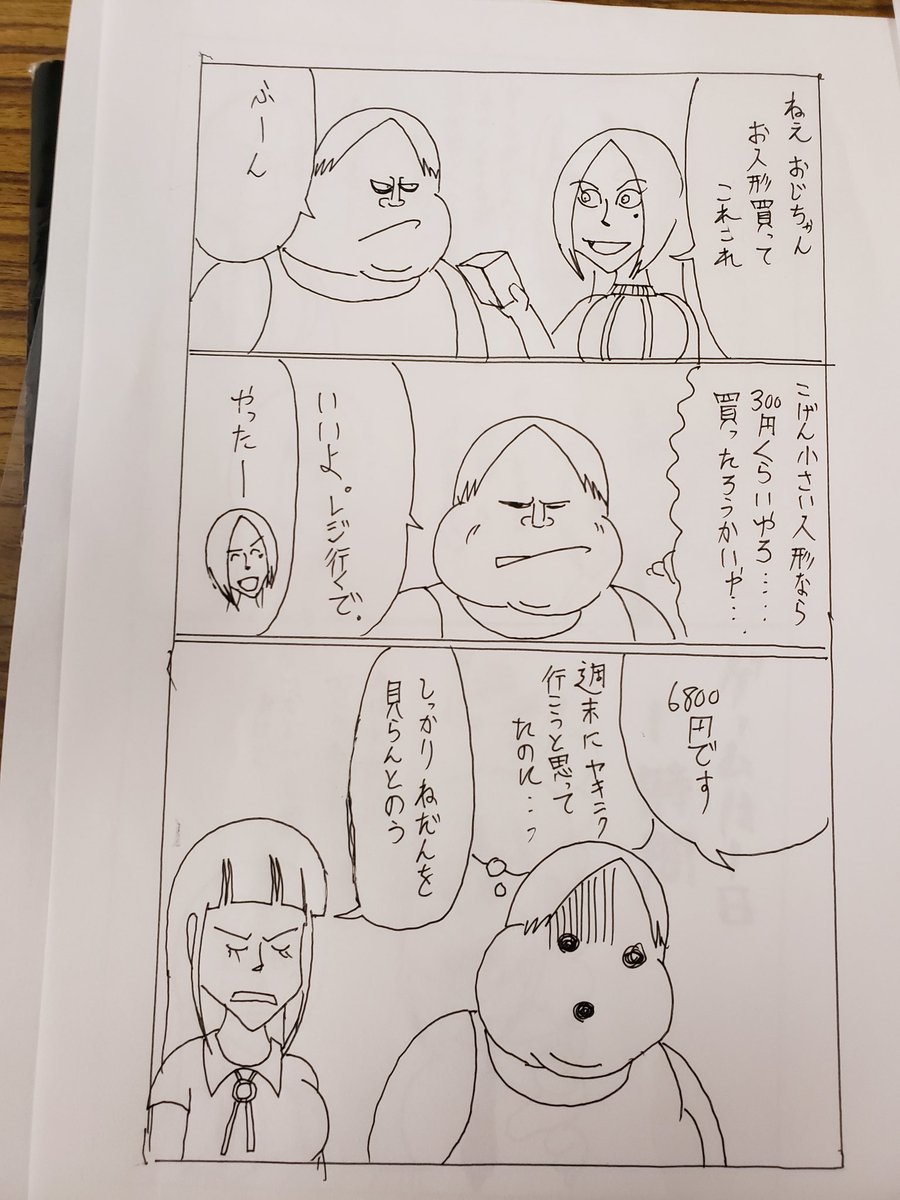 ねえ おじちゃん
お人形買って
これこれ
ふーん
こげん小さい人形なら
300円くらいやろ.....
買ったろうかいや...
いいよ。レジ行くで。
やったー
6800円です
週末にヤキニク
行こうと思って
たのに...
しっかりねだんを
見らんとのう